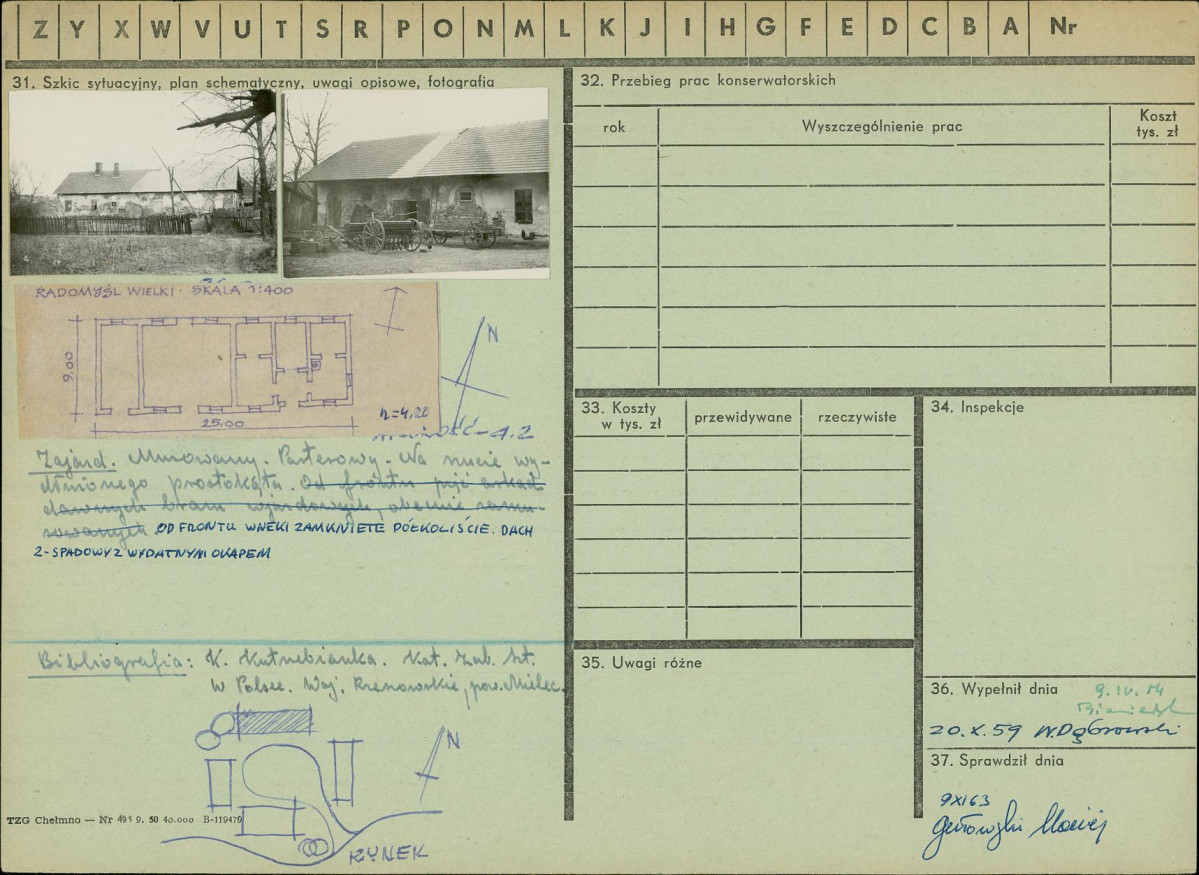 Z Y X W V U T S R P O N M L K J I H G F E D C B A Nr
31. Szkic sytuacyjny, plan schematyczny, uwagi opisowe, fotografia
RADOMYŚL WIELKI · SKALA 1:400
9,00
25.00
N
Zajazd. Murowany. Parterowy. Na rzucie wy-
dłużonego prostokąta. Od frontu pięć arkad
dawnych bram wjazdowych, obecnie zamu-
rowanych. OD FRONTU WNĘKI ZAMKNIĘTE PÓŁKOLIŚCIE. DACH
2-SPADOWY Z WYDATNYM OKAPEM
Bibliografia: K. Kutrzebianka. Kat. Zab. Szt.
w Polsce. Woj. Rzeszowskie, pow. Mielec.
N
RYNEK
TZG Chełmno — Nr 495 9. 50 40.000 B-119479
32. Przebieg prac konserwatorskich
rok
Wyszczególnienie prac
Koszt
tys. zł
33. Koszty
w tys. zł
przewidywane
rzeczywiste
34. Inspekcje
35. Uwagi różne
36. Wypełnił dnia
20.X.59 W.Dąbrowski
37. Sprawdził dnia
9XI63
Maciej